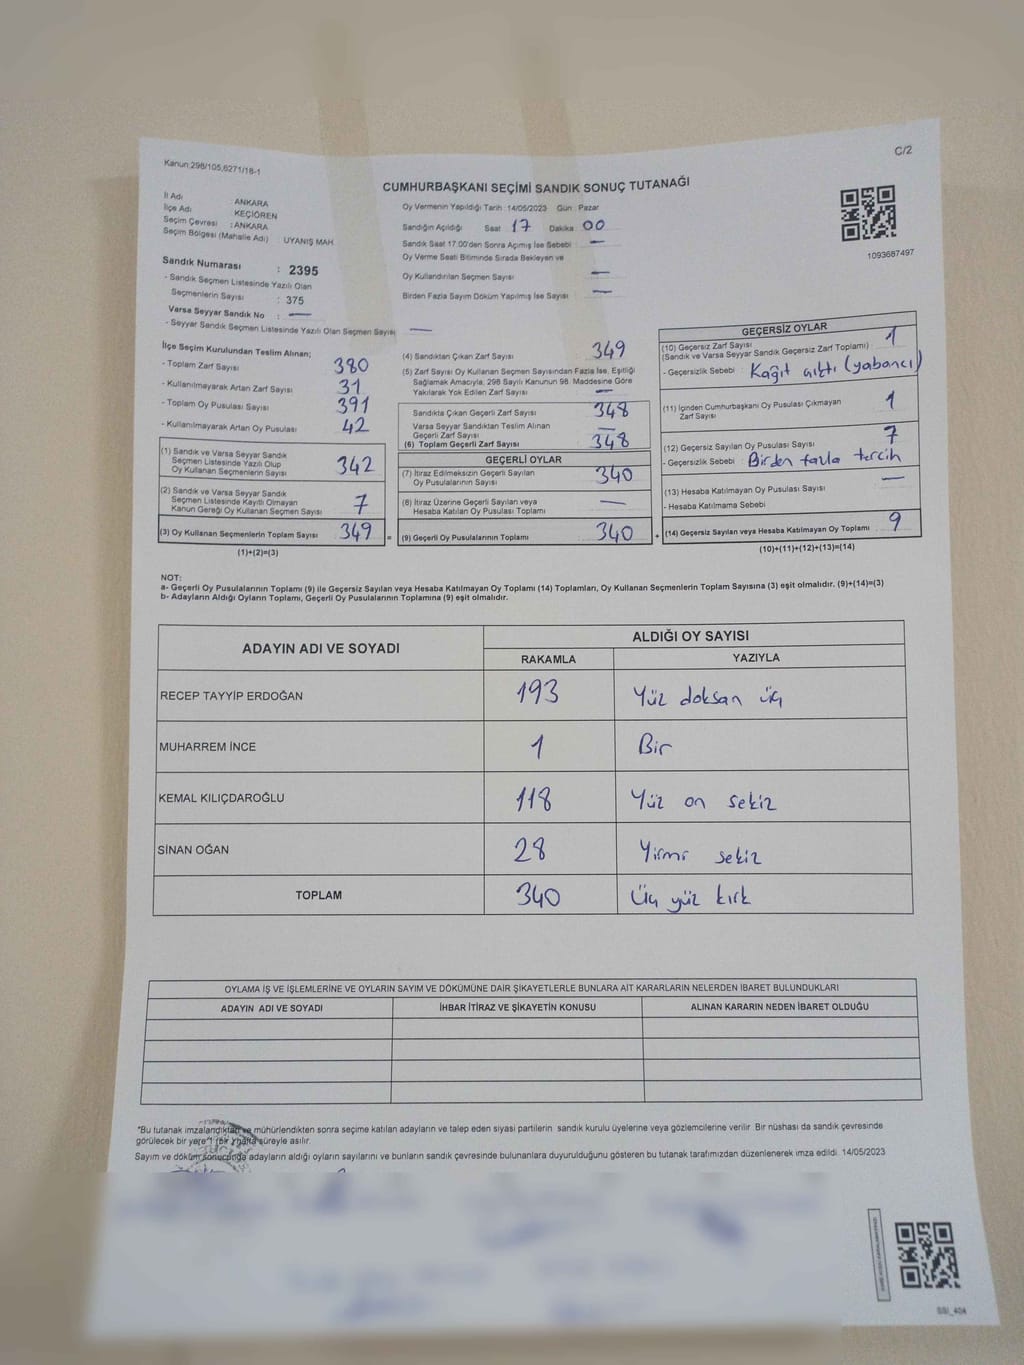 Kanun:298/105,6271/18-1
C/2
CUMHURBAŞKANI SEÇİMİ SANDIK SONUÇ TUTANAĞI
İl Adı : ANKARA
İlçe Adı : KEÇİÖREN
Seçim Çevresi : ANKARA
Seçim Bölgesi (Mahalle Adı) UYANIŞ MAH.
Sandık Numarası : 2395
- Sandık Seçmen Listesinde Yazılı Olan
Seçmenlerin Sayısı : 375
Varsa Seyyar Sandık No : —
- Seyyar Sandık Seçmen Listesinde Yazılı Olan Seçmen Sayısı —
Oy Vermenin Yapıldığı Tarih :14/05/2023 Gün : Pazar
Sandığın Açıldığı Saat 17 Dakika 00
Sandık Saat 17:00'den Sonra Açımış İse Sebebi : —
Oy Verme Saati Bitiminde Sırada Bekleyen ve
Oy Kullandırılan Seçmen Sayısı —
Birden Fazla Sayım Döküm Yapılmış İse Sayısı : —
1093687497
İlçe Seçim Kurulundan Teslim Alınan;
- Toplam Zarf Sayısı : 380
- Kullanılmayarak Artan Zarf Sayısı : 31
- Toplam Oy Pusulası Sayısı : 391
- Kullanılmayarak Artan Oy Pusulası : 42
(1) Sandık ve Varsa Seyyar Sandık
Seçmen Listesinde Yazılı Olup
Oy Kullanan Seçmenlerin Sayısı : 342
(2) Sandık ve Varsa Seyyar Sandık
Seçmen Listesinde Kayıtlı Olmayan
Kanun Gereği Oy Kullanan Seçmen Sayısı : 7
(3) Oy Kullanan Seçmenlerin Toplam Sayısı : 349 =
(1)+(2)=(3)
(4) Sandıktan Çıkan Zarf Sayısı : 349
(5) Zarf Sayısı Oy Kullanan Seçmen Sayısından Fazla İse, Eşitliği
Sağlamak Amacıyla, 298 Sayılı Kanunun 98. Maddesine Göre
Yakılarak Yok Edilen Zarf Sayısı : —
Sandıkta Çıkan Geçerli Zarf Sayısı : 348
Varsa Seyyar Sandıktan Teslim Alınan
Geçerli Zarf Sayısı : —
(6) Toplam Geçerli Zarf Sayısı : 348
GEÇERLİ OYLAR
(7) İtiraz Edilmeksizin Geçerli Sayılan
Oy Pusulalarının Sayısı : 340
(8) İtiraz Üzerine Geçerli Sayılan veya
Hesaba Katılan Oy Pusulası Toplamı : —
(9) Geçerli Oy Pusulalarının Toplamı : 340 +
GEÇERSİZ OYLAR
(10) Geçersiz Zarf Sayısı : 1
(Sandık ve Varsa Seyyar Sandık Geçersiz Zarf Toplamı)
- Geçersizlik Sebebi : Kağıt çıktı (yabancı)
(11) İçinden Cumhurbaşkanı Oy Pusulası Çıkmayan
Zarf Sayısı : 1
(12) Geçersiz Sayılan Oy Pusulası Sayısı : 7
- Geçersizlik Sebebi : Birden fazla tercih
(13) Hesaba Katılmayan Oy Pusulası Sayısı : —
- Hesaba Katılmama Sebebi :
(14) Geçersiz Sayılan veya Hesaba Katılmayan Oy Toplamı : 9
(10)+(11)+(12)+(13)=(14)
NOT:
a- Geçerli Oy Pusulalarının Toplamı (9) ile Geçersiz Sayılan veya Hesaba Katılmayan Oy Toplamı (14) Toplamları, Oy Kullanan Seçmenlerin Toplam Sayısına (3) eşit olmalıdır. (9)+(14)=(3)
b- Adayların Aldığı Oyların Toplamı, Geçerli Oy Pusulalarının Toplamına (9) eşit olmalıdır.
ADAYIN ADI VE SOYADI
ALDIĞI OY SAYISI
RAKAMLA YAZIYLA
RECEP TAYYİP ERDOĞAN 193 Yüz doksan üç
MUHARREM İNCE 1 Bir
KEMAL KILIÇDAROĞLU 118 Yüz on sekiz
SİNAN OĞAN 28 Yirmi sekiz
TOPLAM 340 Üç yüz kırk
OYLAMA İŞ VE İŞLEMLERİNE VE OYLARIN SAYIM VE DÖKÜMÜNE DAİR ŞİKAYETLERLE BUNLARA AİT KARARLARIN NELERDEN İBARET BULUNDUKLARI
ADAYIN ADI VE SOYADI İHBAR İTİRAZ VE ŞİKAYETİN KONUSU ALINAN KARARIN NEDEN İBARET OLDUĞU
"Bu tutanak imzalandıktan ve mühürlendikten sonra seçime katılan adayların ve talep eden siyasi partilerin sandık kurulu üyelerine veya gözlemcilerine verilir. Bir nüshası da sandık çevresinde
görülecek bir yere 1 (bir) hafta süreyle asılır.
Sayım ve döküm sonucunda adayların aldığı oyların sayılarını ve bunların sandık çevresinde bulunanlara duyurulduğunu gösteren bu tutanak tarafımızdan düzenlenerek imza edildi. 14/05/2023
SSI_404